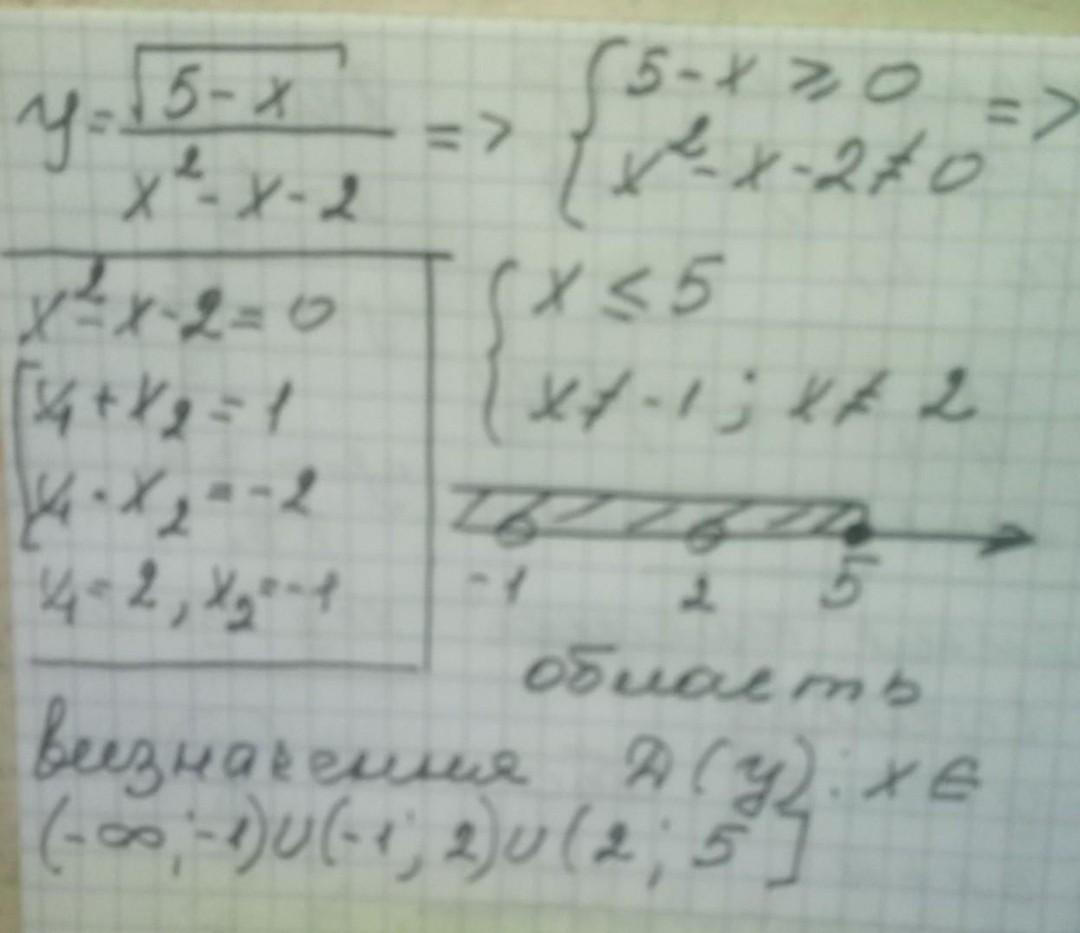 y = √(5 - x) / (x² - x - 2) => { 5 - x ≥ 0 ; x² - x - 2 ≠ 0 =>
x² - x - 2 = 0
[ x₁ + x₂ = 1
x₁ · x₂ = -2
x₁ = 2, x₂ = -1
{ x ≤ 5
x ≠ -1; x ≠ 2
-1 2 5
область
визначення D(y): x ∈
(-∞; -1)∪(-1; 2)∪(2; 5]